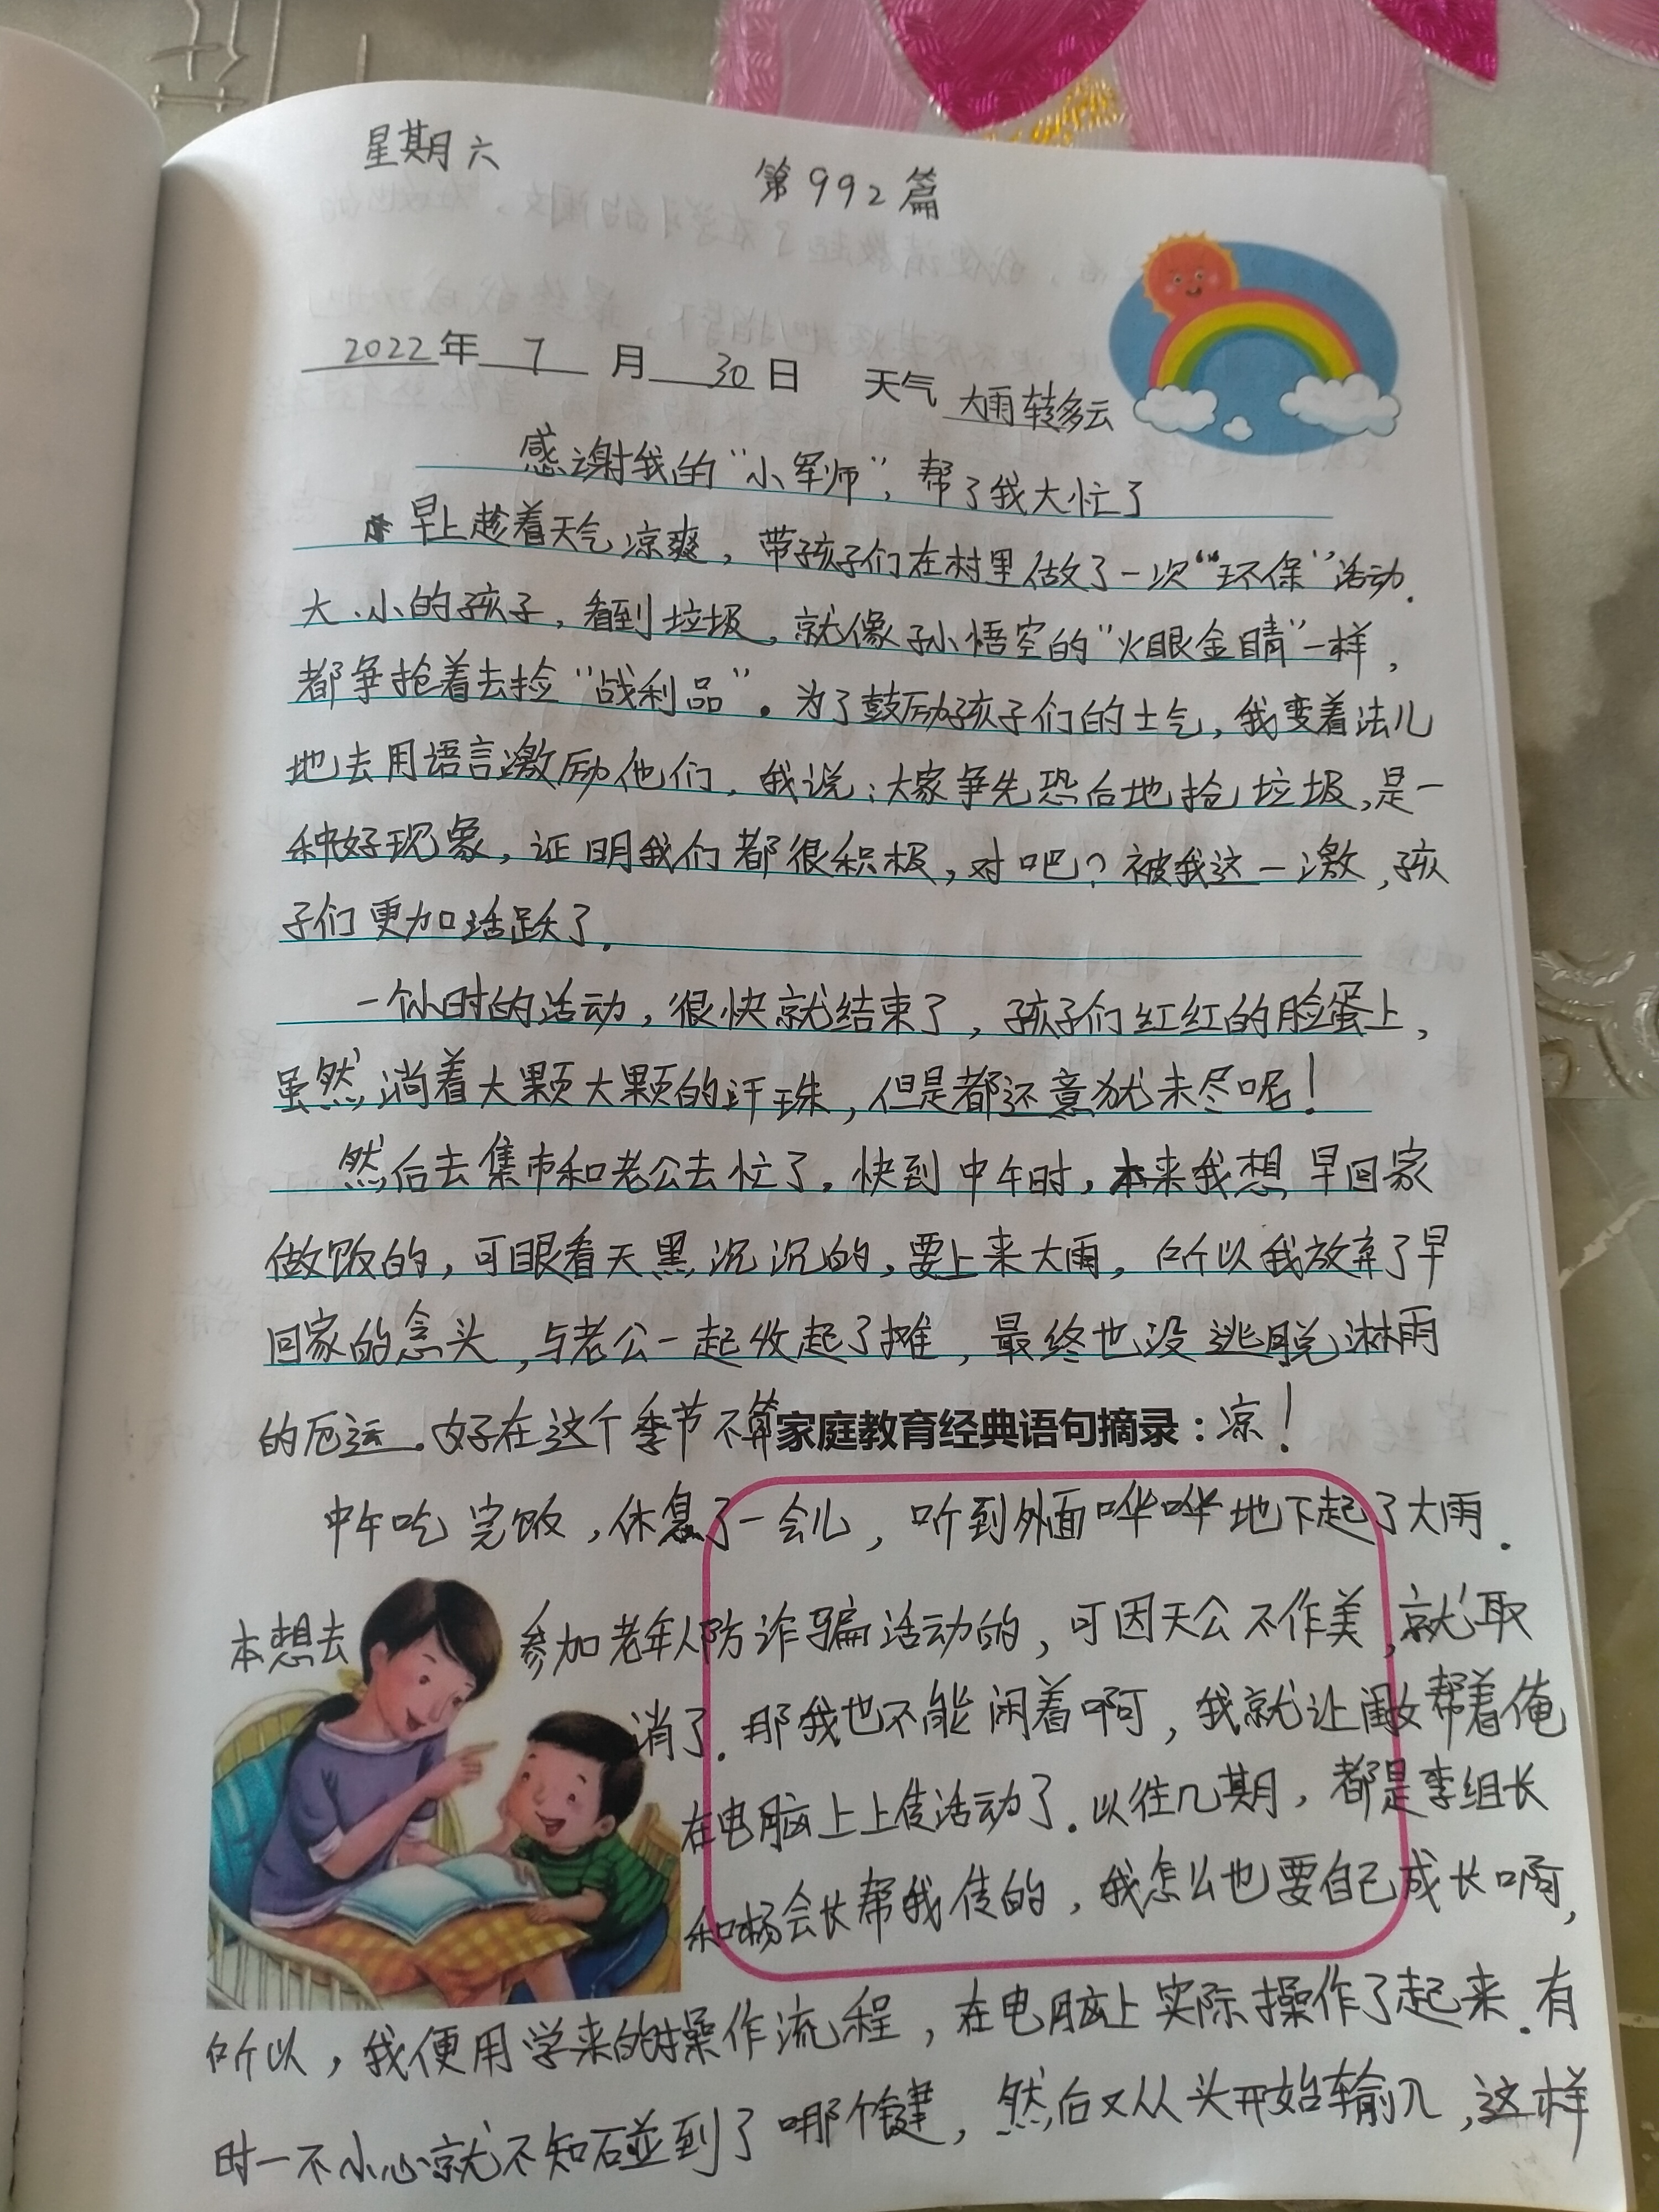 星期六
第992篇
2022年 7 月 30 日 天气 大雨转多云
感谢我的“小军师”,帮了我大忙了
早上趁着天气凉爽，带孩子们在村里做了一次“环保”活动.
大、小的孩子，看到垃圾，就像孙悟空的“火眼金睛”一样，
都争抢着去捡“战利品”。为了鼓励孩子们的士气，我变着法儿
地去用语言激励他们，我说：大家争先恐后地抢垃圾，是一
种好现象，证明我们都很积极，对吧？被我这一激，孩
子们更加活跃了.
一个小时的活动，很快就结束了，孩子们红红的脸蛋上，
虽然淌着大颗大颗的汗珠，但是都还意犹未尽呢！
然后去集市和老公去忙了。快到中午时，本来我想早回家
做饭的，可眼看天黑沉沉的，要上来大雨，所以我放弃了早
回家的念头，与老公一起收起了摊，最终也没逃脱淋雨
的厄运。好在这个季节不算家庭教育经典语句摘录：凉！
中午吃完饭，休息了一会儿，听到外面哗哗地下起了大雨.
本想去参加老年人防诈骗活动的，可因天公不作美，就取
消了.那我也不能闲着啊，我就让闺女帮着俺
在电脑上上传活动了.以往几期，都是李组长
和杨会长帮我传的，我怎么也要自己成长啊，
所以，我便用学来的操作流程，在电脑上实际操作了起来.有
时一不小心就不知碰到了哪个键，然后又从头开始输入，这样